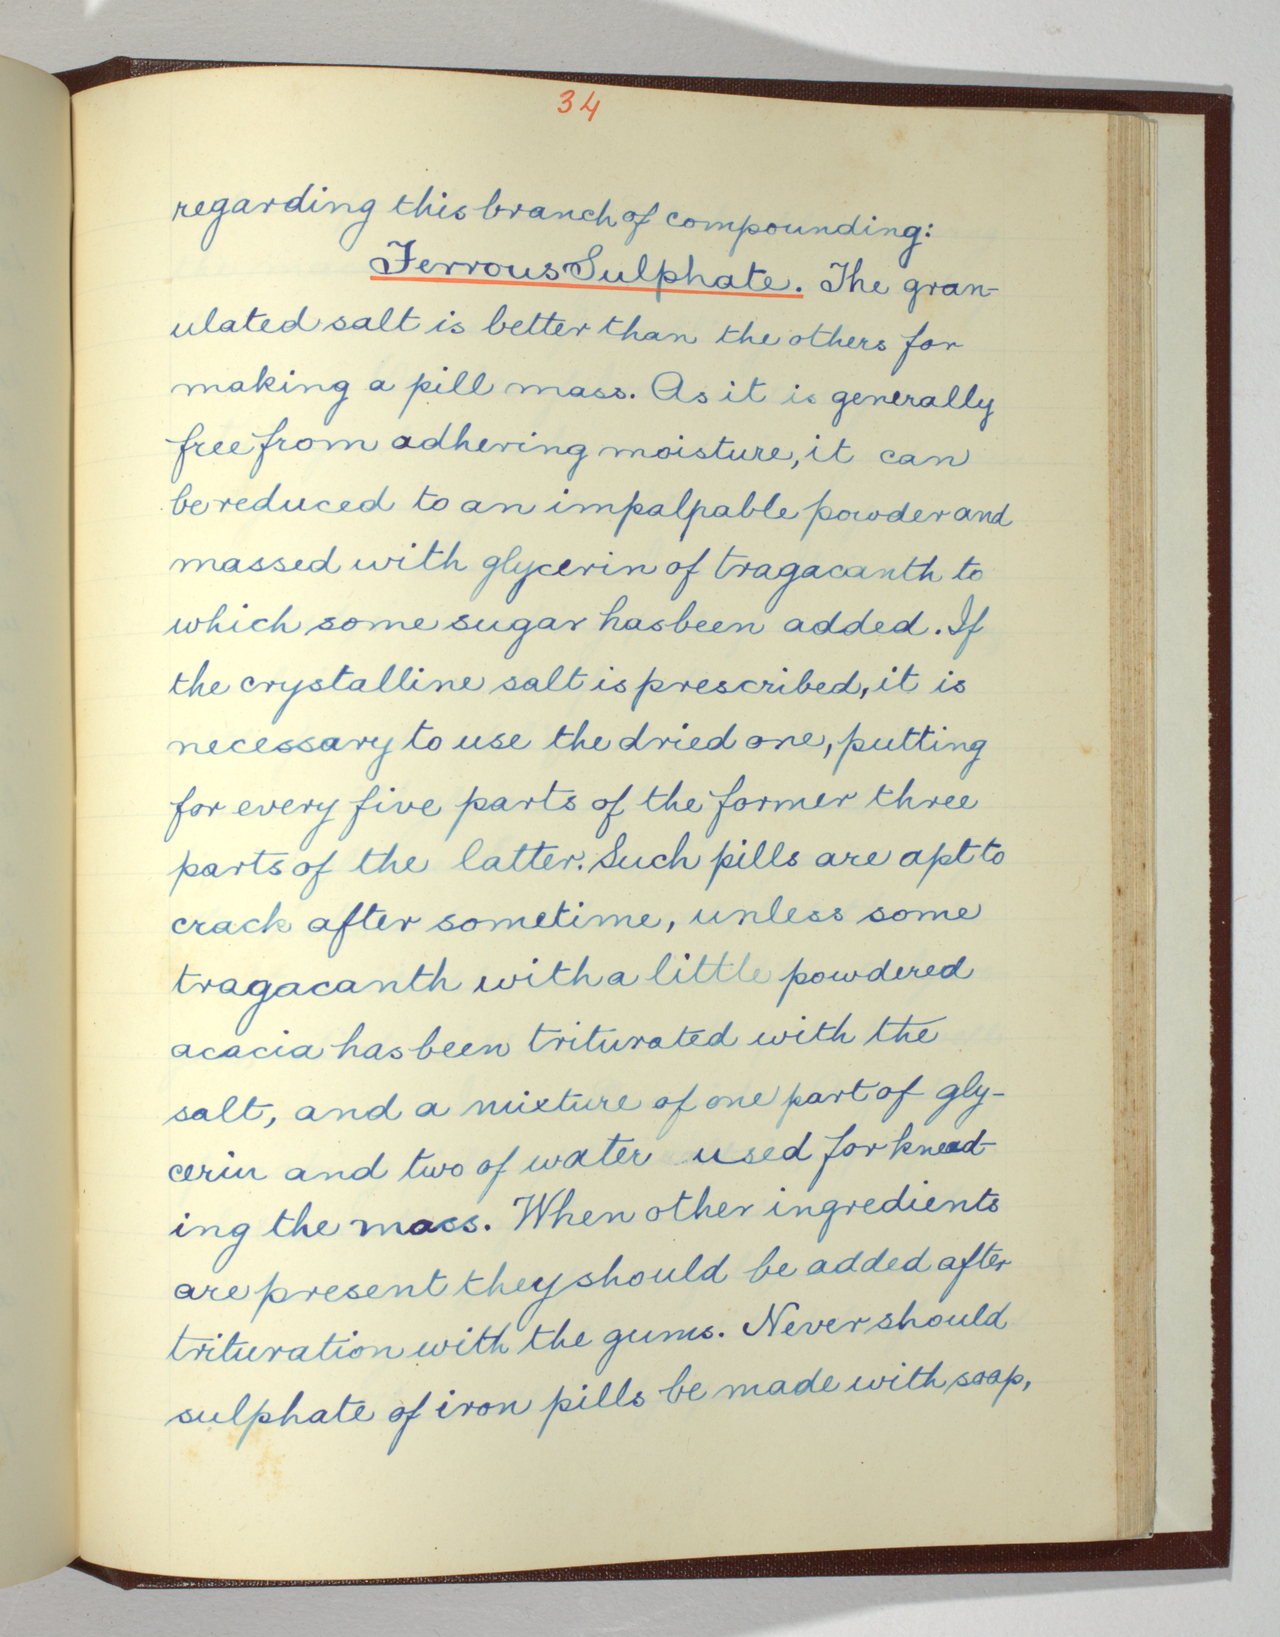 34
regarding this branch of compounding:
Ferrous Sulphate. The gran-
ulated salt is better than the others for
making a pill mass. As it is generally
free from adhering moisture, it can
be reduced to an impalpable powder and
massed with glycerin of tragacanth to
which some sugar has been added. If
the crystalline salt is prescribed, it is
necessary to use the dried one, putting
for every five parts of the former three
parts of the latter. Such pills are apt to
crack after sometime, unless some
tragacanth with a little powdered
acacia has been triturated with the
salt, and a mixture of one part of gly-
cerin and two of water used for knead-
ing the mass. When other ingredients
are present they should be added after
trituration with the gums. Never should
sulphate of iron pills be made with soap,